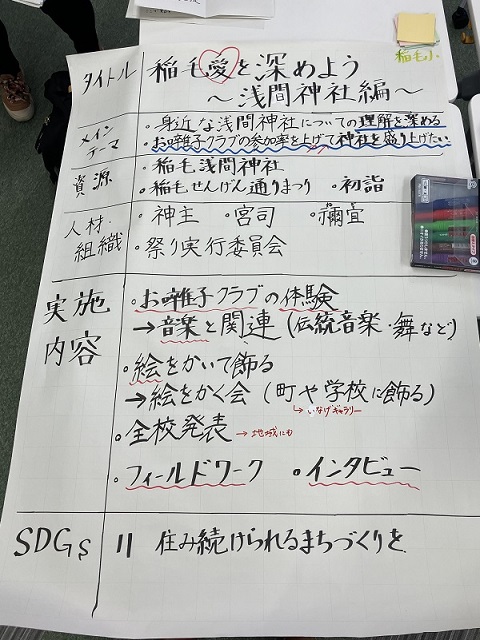 稲毛小
タイトル 稲毛愛を深めよう
～浅間神社編～
メインテーマ ・身近な浅間神社についての理解を深める
・お囃子クラブの参加率を上げて神社を盛り上げたい
資源 ・稲毛浅間神社
・稲毛せんげん通りまつり ・初詣
人材・組織 ・神主 ・宮司 ・禰宜
・祭り実行委員会
実施内容 ・お囃子クラブの体験
→音楽と関連(伝統音楽・舞など)
・絵をかいて飾る
→絵をかく会(町や学校に飾る)
↳いなげギャラリー
・全校発表→地域にも
・フィールドワーク ・インタビュー
SDGs 11 住み続けられるまちづくりを